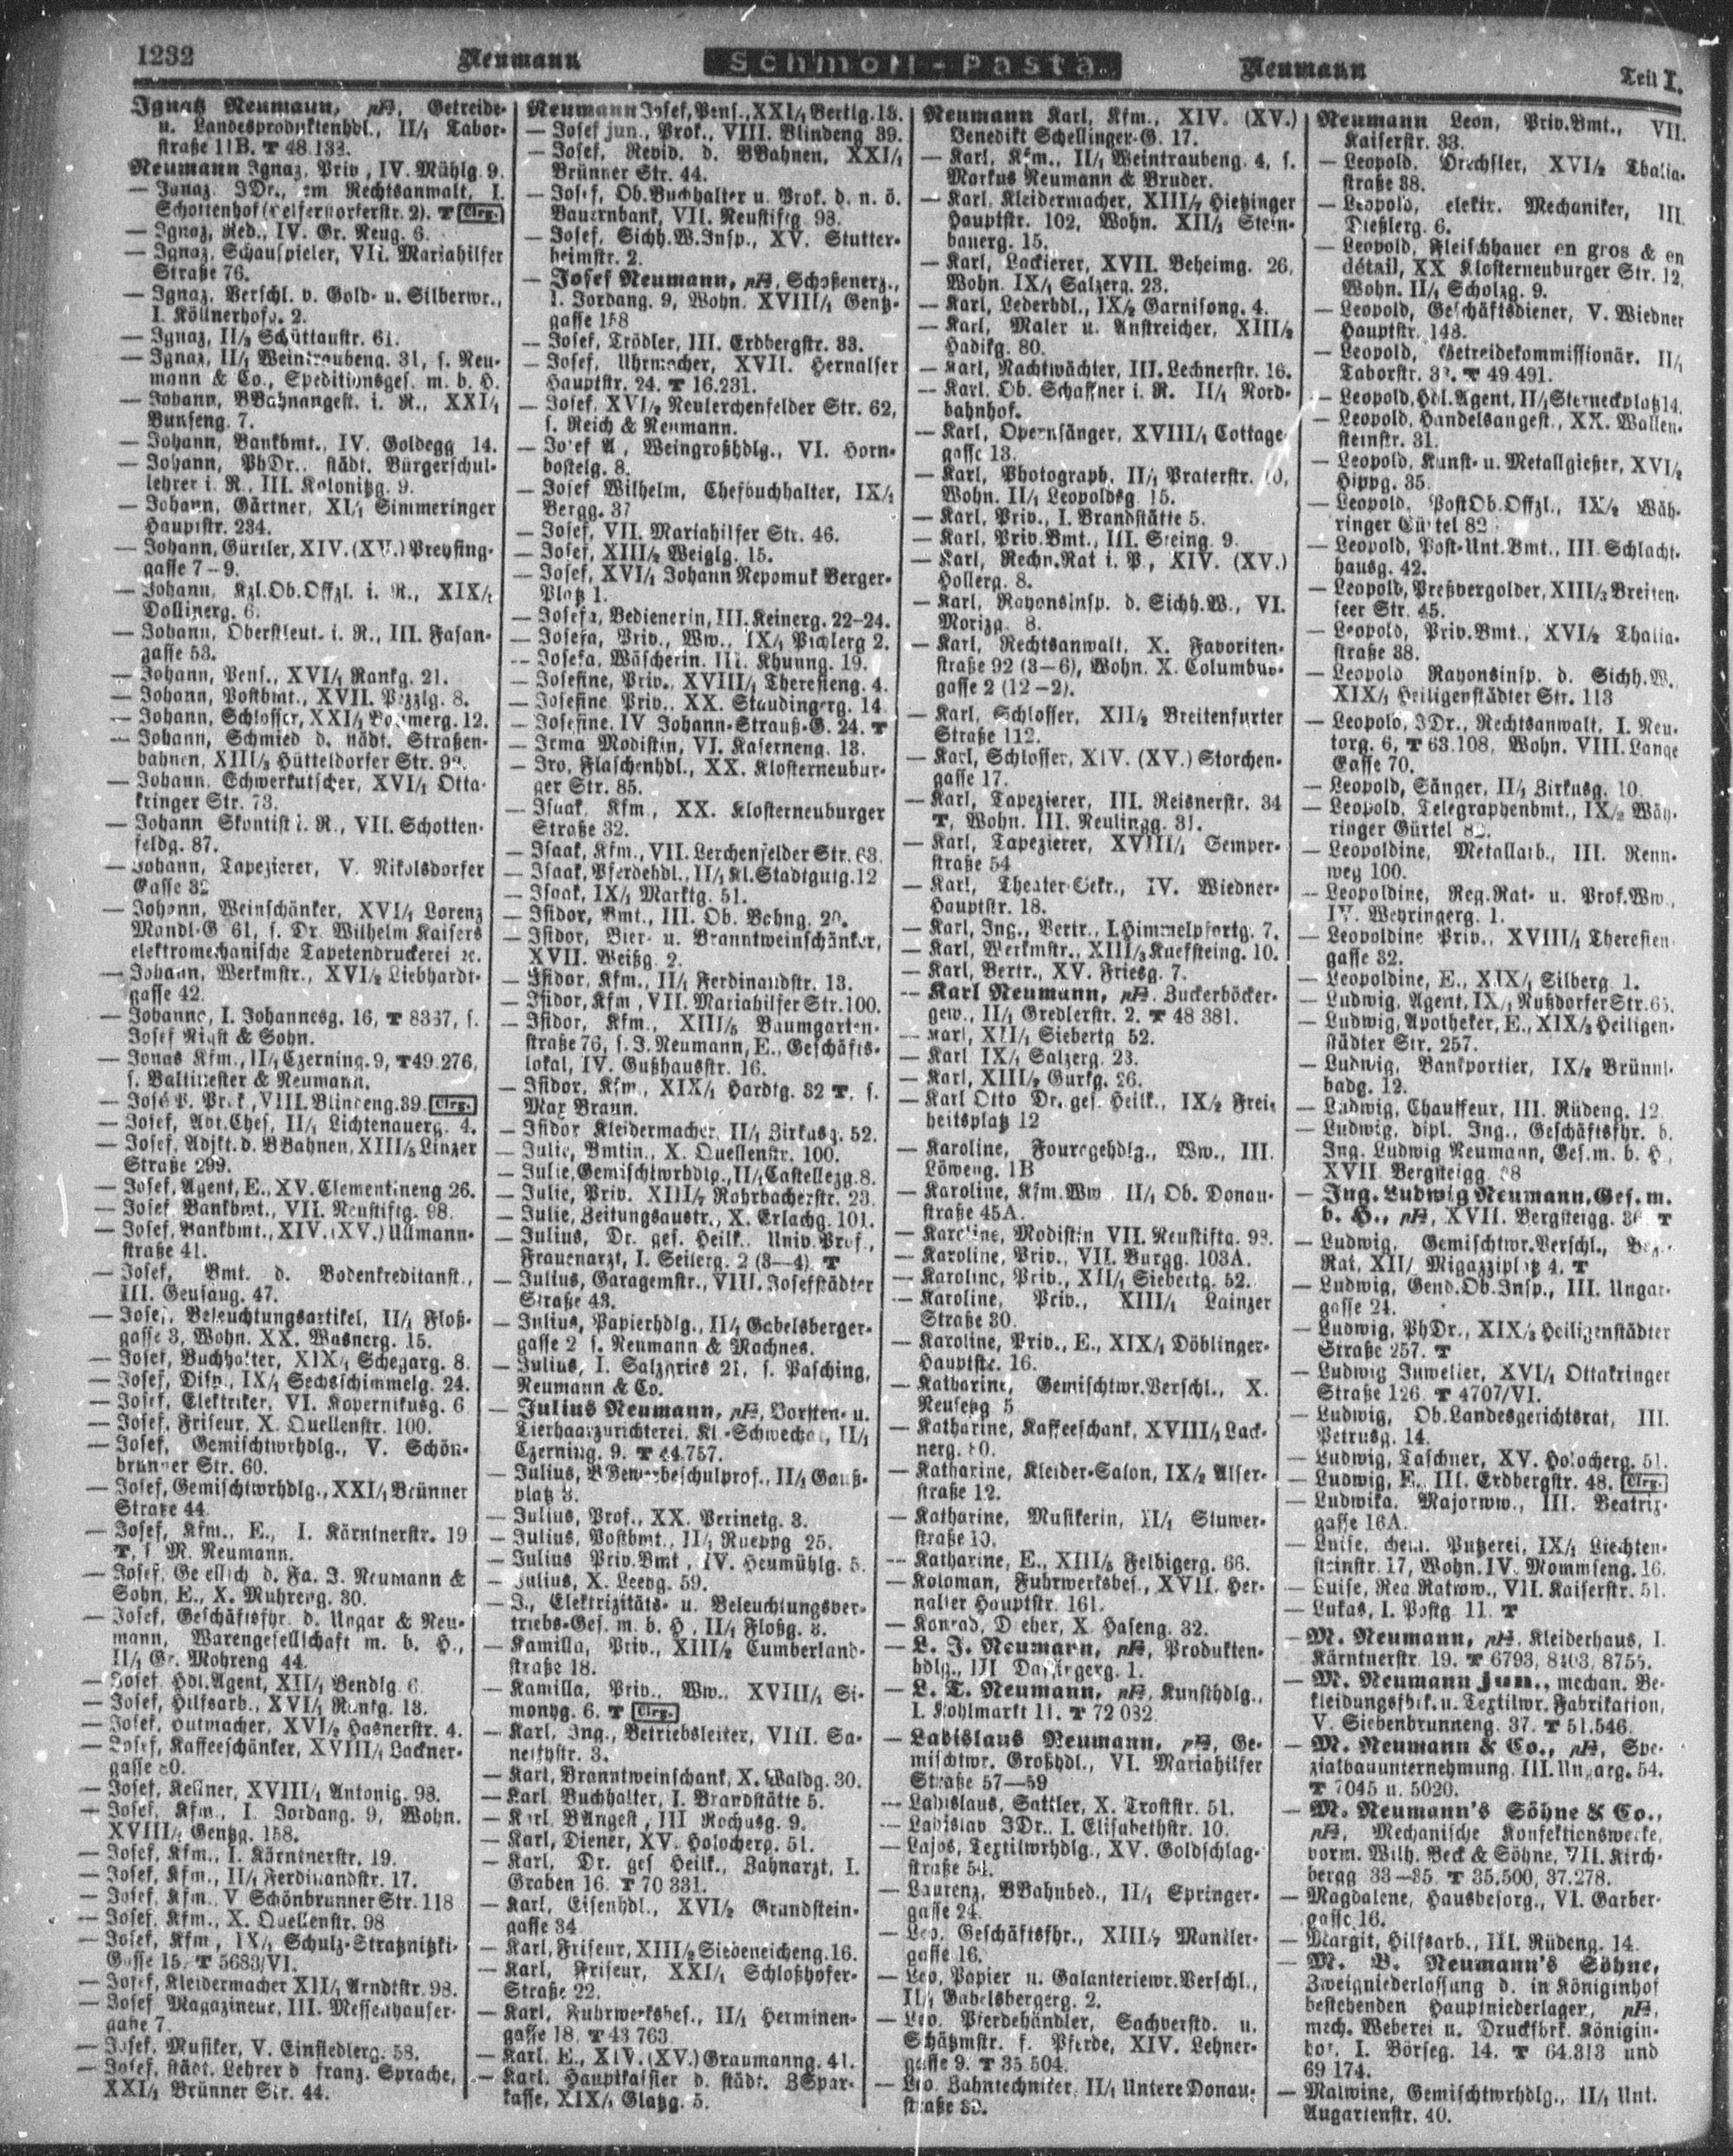 1232
Neumann
Schmoll-Pasta
Neumann
Teil I.
Ignatz Neumann, pA, Getreide-
u. Landesproduktenhdl., II/1 Tabor-
straße 11B. T 48.133.
Neumann Ignaz, Priv, IV. Mühlg. 9.
— Ignaz, JDr., em Rechtsanwalt, I.
Schottenhof (Helferstorferstr. 2). T Clrg.
— Ignaz, Red., IV. Gr. Neug. 6.
— Ignaz, Schauspieler, VII. Mariahilfer
Straße 76.
— Ignaz, Verschl. v. Gold- u. Silberwr.,
I. Köllnerhofg. 2.
— Ignaz, II/3 Schüttaustr. 61.
— Ignaz, II/1 Weintraubeng. 31, s. Neu-
mann & Co., Speditionsges. m. b. H.
— Johann, BBahnangest. i. R., XXI/1
Bunseng. 7.
— Johann, Bankbmt., IV. Goldegg 14.
— Johann, PhDr., städt. Bürgerschul-
lehrer i. R., III. Kolonitzg. 9.
— Johann, Gärtner, XI/1 Simmeringer
Hauptstr. 234.
— Johann, Gürtler, XIV. (XV.) Preysing-
gasse 7–9.
— Johann, Kzl.Ob.Offzl. i. R., XIX/1
Dollinerg. 6.
— Johann, Oberstleut. i. R., III. Fasan-
gasse 53.
— Johann, Pens., XVI/1 Rankg. 21.
— Johann, Postbmt., XVII. Pezzlg. 8.
— Johann, Schlosser, XXI/1 Bohmerg. 12.
— Johann, Schmied d. städt. Straßen-
bahnen, XIII/3 Hütteldorfer Str.
— Johann, Schwerkutscher, XVI/1 Otta-
kringer Str. 73.
— Johann Skontist i. R., VII. Schotten-
feldg. 87.
— Johann, Tapezierer, V. Nikolsdorfer
Gasse 32
— Johann, Weinschänker, XVI/1 Lorenz
Mandl-G 61, s. Dr. Wilhelm Kaisers
elektromechanische Tapetendruckerei ꝛc.
— Johann, Werkmstr., XVI/2 Liebhardt-
gasse 42.
— Johanna, I. Johannesg. 16, T 8337, s.
Josef Rigst & Sohn.
— Jonas Kfm., II/1 Czerning. 9, T 49.276,
s. Baltinester & Neumann.
— Josef, VIII. Blindeng. 39. Clrg.
— Josef, Abt.Chef, II/1 Lichtenauerg. 4.
— Josef, Adjkt. d. BBahnen, XIII/5 Linzer
Straße 299.
— Josef, Agent, E., XV. Clementineng 26.
— Josef Bankbmt., VII. Neustiftg. 98.
— Josef, Bankbmt., XIV. (XV.) Ullmann-
straße 41.
— Josef, Bmt. d. Bodenkreditanst.,
III. Geusaug. 47.
— Josef, Beleuchtungsartikel, II/1 Floß-
gasse 3, Wohn. XX. Wasnerg. 15.
— Josef, Buchhalter, XIX/1 Schegarg. 8.
— Josef, Disp., IX/1 Sechsschimmelg. 24.
— Josef, Elektriker, VI. Kopernikusg. 6
— Josef, Friseur, X. Quellenstr. 100.
— Josef, Gemischtwrhdlg., V. Schön-
brunner Str. 60.
— Josef, Gemischtwrhdlg., XXI/1 Brünner
Straße 44
— Josef, Kfm., E., I. Kärntnerstr. 19
T, s M. Neumann.
— Josef, Gesellsch d. Fa. J. Neumann &
Sohn, E., X. Muhreng. 30.
— Josef, Geschäftsfhr. d. Ungar & Neu-
mann, Warengesellschaft m. b. H.,
II/1 Gr. Mohreng 44.
— Josef, Hdl.Agent, XII/1 Bendlg. 6.
— Josef, Hilfsarb., XVI/1 Rankg. 13.
— Josef, Hutmacher, XVI/2 Hasnerstr. 4.
— Josef, Kaffeeschänker, XVIII/1 Lackner-
gasse 80.
— Josef, Kellner, XVIII/1 Antonig. 98.
— Josef, Kfm., I. Jordang. 9, Wohn.
XVIII/1 Gentzg. 158.
— Josef, Kfm., I. Kärntnerstr. 19.
— Josef, Kfm., II/1 Ferdinandstr. 17.
— Josef, Kfm. V Schönbrunner Str. 118
— Josef, Kfm., X. Quellenstr. 98
— Josef, Kfm, IX/1 Schulz-Straßnitzki-
Gasse 15. T 5683/VI.
— Josef, Kleidermacher XII/1 Arndtstr. 98.
— Josef Magazineur, III. Messenhauser-
gasse 7.
— Josef, Musiker, V. Einsiedlerg. 58.
— Josef, städt. Lehrer d franz. Sprache,
XXI/1 Brünner Str. 44.
Neumann Josef, Pens., XXI/1 Bertlg. 13.
— Josef jun., Prok., VIII. Blindeng 39.
— Josef, Revid. d. BBahnen, XXI/1
Brünner Str. 44.
— Josef, Ob.Buchhalter u. Prok. d. n. ö.
Bauernbank, VII. Neustiftg. 98.
— Josef, Sichh.W.Insp., XV. Stutter-
heimstr. 2.
— Josef Neumann, pA, Schoßenerz.,
I. Jordang. 9, Wohn. XVIII/1 Gentz-
gasse 158
— Josef, Trödler, III. Erdbergstr. 33.
— Josef, Uhrmacher, XVII. Hernalser
Hauptstr. 24. T 16.231.
— Josef, XVI/2 Neulerchenfelder Str. 62,
s. Reich & Neumann.
— Josef A, Weingroßhdlg., VI. Horn-
bostelg. 8.
— Josef Wilhelm, Chefbuchhalter, IX/1
Bergg. 37
— Josef, VII. Mariahilfer Str. 46.
— Josef, XIII/2 Weiglg. 15.
— Josef, XVI/1 Johann Nepomuk Berger-
Platz 1.
— Josefa, Bedienerin, III. Keinerg. 22–24.
— Josefa, Priv., Ww., IX/1 Pichlerg 2.
— Josefa, Wäscherin. III. Khunng. 19.
— Josefine, Priv., XVIII/1 Theresieng. 4.
— Josefine Priv., XX. Staudingerg. 14
— Josefine. IV Johann-Strauß-G. 24. T
— Irma Modistin, VI. Kaserneng. 13.
— Iro, Flaschenhdl., XX. Klosterneubur-
ger Str. 85.
— Isaak, Kfm., XX. Klosterneuburger
Straße 32.
— Isaak, Kfm., VII. Lerchenfelder Str. 63.
— Isaak, Pferdehdl., II/1 Kl. Stadtgutg. 12
— Isaak, IX/1 Marktg. 51.
— Isidor, Bmt., III. Ob. Bahng. 20.
— Isidor, Bier- u. Branntweinschänker,
XVII. Weißg. 2.
— Isidor, Kfm., II/1 Ferdinandstr. 13.
— Isidor, Kfm, VII. Mariahilfer Str. 100.
— Isidor, Kfm., XIII/5 Baumgarten-
straße 76, s. J. Neumann, E., Geschäfts-
lokal, IV. Gußhausstr. 16.
— Isidor, Kfm, XIX/1 Hardtg. 32 T, s.
Max Braun.
— Isidor Kleidermacher, II/1 Zirkusg. 52.
— Julie, Bmtin., X. Quellenstr. 100.
— Julie, Gemischtwrhdlg., II/1 Castellezg. 8.
— Julie, Priv. XIII/7 Rohrbacherstr. 23.
— Julie, Zeitungsaustr., X. Erlachg. 101.
— Julius, Dr. ges. Heilk., Univ.Prof.,
Frauenarzt, I. Seilerg. 2 (3—4). T
— Julius, Garagemstr., VIII. Josefstädter
Straße 43.
— Julius, Papierhdlg., II/1 Gabelsberger-
gasse 2 s. Neumann & Machnes.
— Julius, I. Salzgries 21, s. Pasching,
Neumann & Co.
— Julius Neumann, pA, Borsten- u.
Tierhaarzurichterei, Kl.-Schwechat, II/1
Czerning. 9. T 44.757.
— Julius, BGewerbeschulprof., II/2 Gauß-
platz 3.
— Julius, Prof., XX. Perinetg. 3.
— Julius, Postbmt., II/1 Rueppg 25.
— Julius Priv.Bmt, IV. Heumühlg. 5.
— Julius, X. Leebg. 59.
— J., Elektrizitäts- u. Beleuchtungsver-
triebs-Ges. m. b. H, II/1 Floßg. 3.
— Kamilla, Priv., XIII/2 Cumberland-
straße 18.
— Kamilla, Priv., Ww., XVIII/1 Si-
monyg. 6. T Clrg.
— Karl, Ing., Betriebsleiter, VIII. Sa-
neithstr. 3.
— Karl, Branntweinschank, X. Waldg. 30.
— Karl Buchhalter, I. Brandstätte 5.
— Karl BAngest, III Rochusg. 9.
— Karl, Diener, XV. Holocherg. 51.
— Karl, Dr. ges Heilk., Zahnarzt, I.
Graben 16. T 70 331.
— Karl, Eisenhdl., XVI/2 Grundstein-
gasse 34
— Karl, Friseur, XIII/2 Siebeneicheng. 16.
— Karl, Friseur, XXI/1 Schloßhofer-
Straße 22.
— Karl, Fuhrwerksbes., II/1 Herminen-
gasse 18. T 43 763.
— Karl, E., XIV. (XV.) Graumanng. 41.
— Karl. Hauptkassier d. städt. BSpar-
kasse, XIX/1 Glatzg. 5.
Neumann Karl, Kfm., XIV. (XV.)
Benedikt Schellinger-G. 17.
— Karl, Kfm., II/1 Weintraubeng. 4, s.
Markus Neumann & Bruder.
— Karl, Kleidermacher, XIII/2 Hietzinger
Hauptstr. 102, Wohn. XII/1 Stein-
bauerg. 15.
— Karl, Lackierer, XVII. Beheimg. 26,
Wohn. IX/1 Salzerg. 23.
— Karl, Lederhdl., IX/2 Garnisong. 4.
— Karl, Maler u. Anstreicher, XIII/2
Hadikg. 80.
— Karl, Nachtwächter, III. Lechnerstr. 16.
— Karl. Ob. Schaffner i. R. II/1 Nord-
bahnhof.
— Karl, Opernsänger, XVIII/1 Cottage-
gasse 13.
— Karl, Photograph, II/1 Praterstr.
Wohn. II/1 Leopoldsg 15.
— Karl, Priv., I. Brandstätte 5.
— Karl, Priv.Bmt., III. Steing. 9.
— Karl, Rechn.Rat i. P, XIV. (XV.)
Hollerg. 8.
— Karl, Rayonsinsp. d. Sichh.W., VI.
Morizg. 8.
— Karl, Rechtsanwalt, X. Favoriten-
straße 92 (3–6), Wohn. X. Columbus-
gasse 2 (12–2).
— Karl, Schlosser, XII/2 Breitenfurter
Straße 112.
— Karl, Schlosser, XIV. (XV.) Storchen-
gasse 17.
— Karl, Tapezierer, III. Reisnerstr. 34
T, Wohn. III. Neulingg. 31.
— Karl, Tapezierer, XVIII/1 Semper-
straße 54
— Karl, Theater-Sekr., IV. Wiedner-
Hauptstr. 18.
— Karl, Ing., Vertr., I. Himmelpfortg. 7.
— Karl, Werkmstr., XIII/3 Kuefsteing. 10.
— Karl, Vertr., XV. Friesg. 7.
— Karl Neumann, pA. Zuckerbäcker-
gew., II/1 Gredlerstr. 2. T 48 381.
— Karl, XII/1 Siebertg 52.
— Karl IX/1 Salzerg. 23.
— Karl, XIII/2 Gurkg. 26.
— Karl Otto Dr. ges. Heilk., IX/2 Frei-
heitsplatz 12
— Karoline, Fouragehdlg., Ww., III.
Löweng. 1B
— Karoline, Kfm.Ww II/1 Ob. Donau-
straße 45A.
— Karoline, Modistin VII. Neustiftg. 93.
— Karoline, Priv., VII. Burgg. 103A.
— Karoline, Priv., XII/1 Siebertg. 52.
— Karoline, Priv., XIII/1 Lainzer
Straße 30.
— Karoline, Priv., E., XIX/1 Döblinger-
Hauptstr. 16.
— Katharine, Gemischtwr.Verschl., X.
Neusetzg 5
— Katharine, Kaffeeschank, XVIII/1 Lack-
nerg. 80.
— Katharine, Kleider-Salon, IX/2 Alser-
straße 12.
— Katharine, Musikerin, II/1 Stuwer-
straße 13.
— Katharine, E., XIII/5 Felbigerg. 66.
— Koloman, Fuhrwerksbes., XVII. Her-
nalser Hauptstr. 161.
— Konrad, Dreher, X. Haseng. 32.
— L. J. Neumann, pA, Produkten-
hdlg., III Dapingerg. 1.
— L. T. Neumann, pA, Kunsthdlg.,
I. Kohlmarkt 11. T 72 082.
— Ladislaus Neumann, pA, Ge-
mischtwr. Großhdl., VI. Mariahilfer
Straße 57—59
— Ladislaus, Sattler, X. Troststr. 51.
— Ladislav JDr., I. Elisabethstr. 10.
— Lajos, Textilwrhdlg., XV. Goldschlag-
straße 54.
— Laurenz, BBahnbed., II/1 Springer-
gasse 24.
— Leo, Geschäftsfhr., XIII/7 Mantler-
gasse 16.
— Leo, Papier u. Galanteriewr.Verschl.,
II/1 Gabelsbergerg. 2.
— Leo. Pferdehändler, Sachverstd. u.
Schätzmstr. f. Pferde, XIV. Lehner-
gasse 9. T 35.504.
— Leo. Zahntechniker, II/1 Untere Donau-
straße 39.
Neumann Leon, Priv.Bmt., VII.
Kaiserstr. 33.
— Leopold, Drechsler, XVI/2 Thalia-
straße 38.
— Leopold, elektr. Mechaniker, III.
Dießlerg. 6.
— Leopold, Fleischhauer en gros & en
détail, XX Klosterneuburger Str. 12,
Wohn. II/1 Scholzg. 9.
— Leopold, Geschäftsdiener, V. Wiedner
Hauptstr. 148.
— Leopold, Getreidekommissionär. II/1
Taborstr. T 49.491.
— Leopold, Hdl.Agent, II/1 Sterneckplatz 14.
— Leopold, Handelsangest., XX. Wallen-
steinstr. 31.
— Leopold, Kunst- u. Metallgießer, XVI/2
Hippg. 35.
— Leopold, PostOb.Offzl., IX/2 Wäh-
ringer Gürtel 82
— Leopold, Post-Unt.Bmt., III. Schlacht-
hausg. 42.
— Leopold, Preßvergolder, XIII/3 Breiten-
seer Str. 45.
— Leopold, Priv.Bmt., XVI/2 Thalia-
straße 38.
— Leopold Rayonsinsp. d. Sichh.W.
XIX/1 Heiligenstädter Str. 113
— Leopold, JDr., Rechtsanwalt, I. Neu-
torg. 6, T 63.108, Wohn. VIII. Lange
Gasse 70.
— Leopold, Sänger, II/1 Zirkusg. 10.
— Leopold, Telegraphenbmt., IX/2 Wäh-
ringer Gürtel 82.
— Leopoldine, Metallarb., III. Renn-
weg 100.
— Leopoldine, Reg.Rat- u. Prof.Ww.,
IV. Weyringerg. 1.
— Leopoldine Priv., XVIII/1 Theresien-
gasse 32.
— Leopoldine, E., XIX/1 Silberg. 1.
— Ludwig, Agent, IX/1 Nußdorfer Str. 65.
— Ludwig, Apotheker, E., XIX/3 Heiligen-
städter Str. 257.
— Ludwig, Bankportier, IX/2 Brünnl-
badg. 12.
— Ludwig, Chauffeur, III. Rüdeng. 12.
— Ludwig, dipl. Ing., Geschäftsfhr. d.
Ing. Ludwig Neumann, Ges. m. b. H,
XVII Bergsteigg.
— Ing. Ludwig Neumann, Ges. m.
b. H., pA, XVII. Bergsteigg. 36 T
— Ludwig, Gemischtwr.Verschl., Bez.-
Rat, XII/1 Migazziplatz 4. T
— Ludwig, Gend.Ob.Insp., III. Ungar-
gasse 24.
— Ludwig, PhDr., XIX/3 Heiligenstädter
Straße 257. T
— Ludwig Juwelier, XVI/1 Ottakringer
Straße 126. T 4707/VI.
— Ludwig, Ob.Landesgerichtsrat, III.
Petrusg. 14.
— Ludwig, Taschner, XV. Holocherg. 51.
— Ludwig, E., III. Erdbergstr. 48. Clrg.
— Ludwika. Majorww., III. Beatrix-
gasse 16A.
— Luise, chem. Putzerei, IX/1 Liechten-
steinstr. 17, Wohn. IV. Mommseng. 16.
— Luise, Reg.Ratww., VII. Kaiserstr. 51.
— Lukas, I. Postg. 11. T
— M. Neumann, pA. Kleiderhaus, I.
Kärntnerstr. 19. T 6793, 8403, 8755.
— M. Neumann jun., mechan. Be-
kleidungsfbrk. u. Textilwr. Fabrikation,
V. Siebenbrunneng. 37. T 51.546.
— M. Neumann & Co., pA, Spe-
zialbauunternehmung. III. Ungarg. 54.
T 7045 u. 5020.
— M. Neumann's Söhne & Co.,
pA, Mechanische Konfektionswerke,
vorm. Wilh. Beck & Söhne, VII. Kirch-
bergg 33–35. T 35,500, 37.278.
— Magdalene, Hausbesorg., VI. Garber-
gasse 16.
— Margit, Hilfsarb., III. Rüdeng. 14.
— M. B. Neumann's Söhne,
Zweigniederlassung d. in Königinhof
bestehenden Hauptniederlager, pA,
mech. Weberei u. Druckfbrk. Königin-
hof, I. Börseg. 14. T 64.313 und
69 174.
— Malwine, Gemischtwrhdlg., II/1 Unt.
Augartenstr. 40.